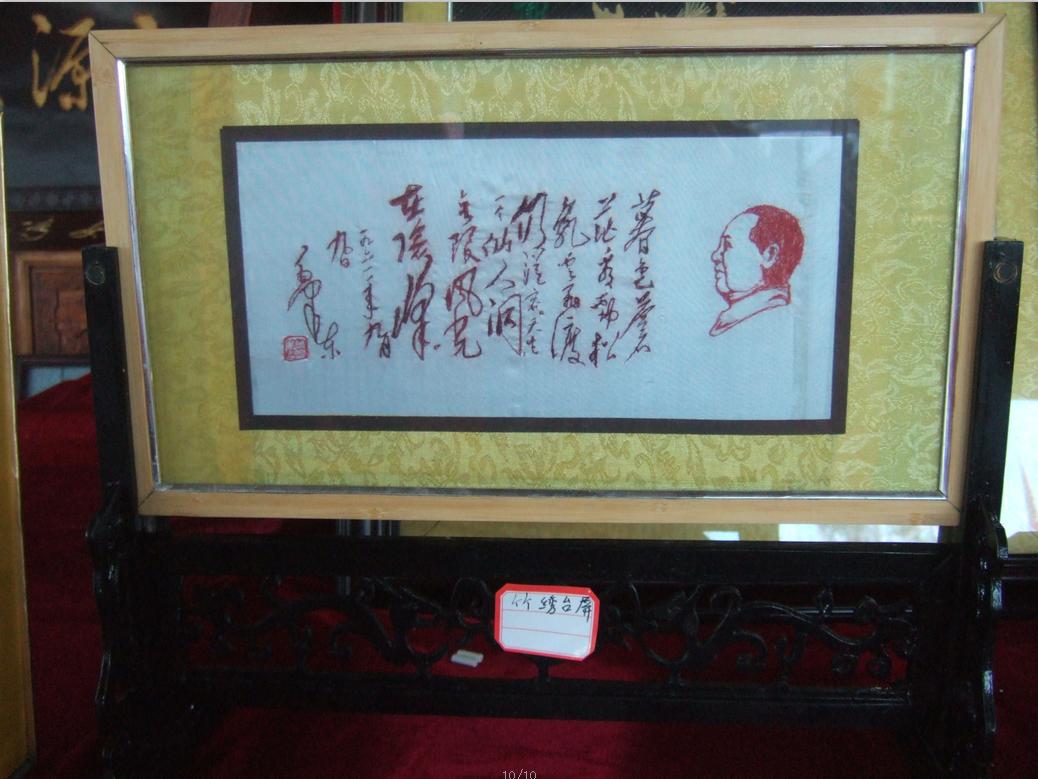 源
暮色蒼
茫看劲松
乱云飞渡
仍从容天生
一个仙人洞
无限风光
在险峰
一九六一年九月
九日
毛泽东
竹绣台屏
10/10